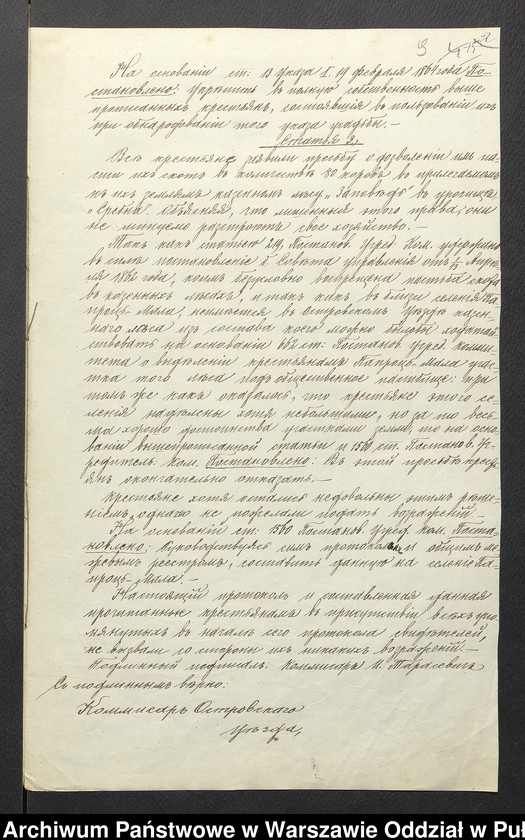 9
На основаніи ст: 13 указа I. 19 февраля 1864 года По-
становлено: Укрѣпить въ полную собственность выше
прописанныхъ крестьянъ, состоявшія въ пользованіи ихъ
при обнародованіи того указа усадьбы. —
Статья 3.
Всѣ крестьяне заявили просьбу о дозволеніи имъ па-
сти ихъ скотъ въ количествѣ 80 коровъ въ прилегаемомъ
къ ихъ землямъ казенномъ лѣсу „Заповѣдь" въ урочищѣ
„Сребна". Объясняя, что лишенные этого права, они
не минуемо разстроютъ свое хозяйство. —
Такъ какъ статьею 219, Постанов. Учред. Ком. усмотрено
въ силѣ постановленіе б. Совѣта управленія отъ Апрѣ-
ля года, коимъ безусловно воспрещена пастьба скота
въ казенныхъ лѣсахъ, и такъ какъ въ близи селенія Па-
процъ-Мала, неимѣется въ Островскомъ уѣздѣ казен-
наго лѣса изъ состава коего можно былобы ходатай-
ствовать на основаніи 662 ст: Постанов. учред. коми-
тета о выдѣленіи крестьянамъ Папроцъ-Мала участ-
ка того лѣса подъ общественное пастбище: при
томъ же какъ оказалось, что крестьяне этого се-
ленія надѣлены хотя небольшими, но за то весь-
ма хорошо достоинства участками земли, то на осно-
ваніи вышепрописанной статьи и 1560 ст. Постанов. Уч-
редитель. Ком. Постановлено: Въ этой просьбѣ кресть-
янъ окончательно отказать. —
Крестьяне хотя остались недовольны этимъ рѣше-
ніемъ, однако не пожелали подать возраженій —
На основаніи ст: 1560 Постанов. Учред. Ком. Поста-
новлено: Руководствуясь симъ протоколомъ и общимъ ме-
жевымъ реестромъ, составить данную на селеніе Па-
процъ-Мала. —
Настоящій протоколъ и составленная данная
прочитанные крестьянамъ въ присутствіи всѣхъ упо-
мянутыхъ въ началѣ сего протокола свидѣтелей,
не вызвали со стороны ихъ никакихъ возраженій. —
Подлинный подписалъ: Коммисаръ И. Тарасевичъ
Съ подлиннымъ вѣрно:
Коммисаръ Островскаго
уѣзда,
Archiwum Państwowe w Warszawie Oddział w Puł